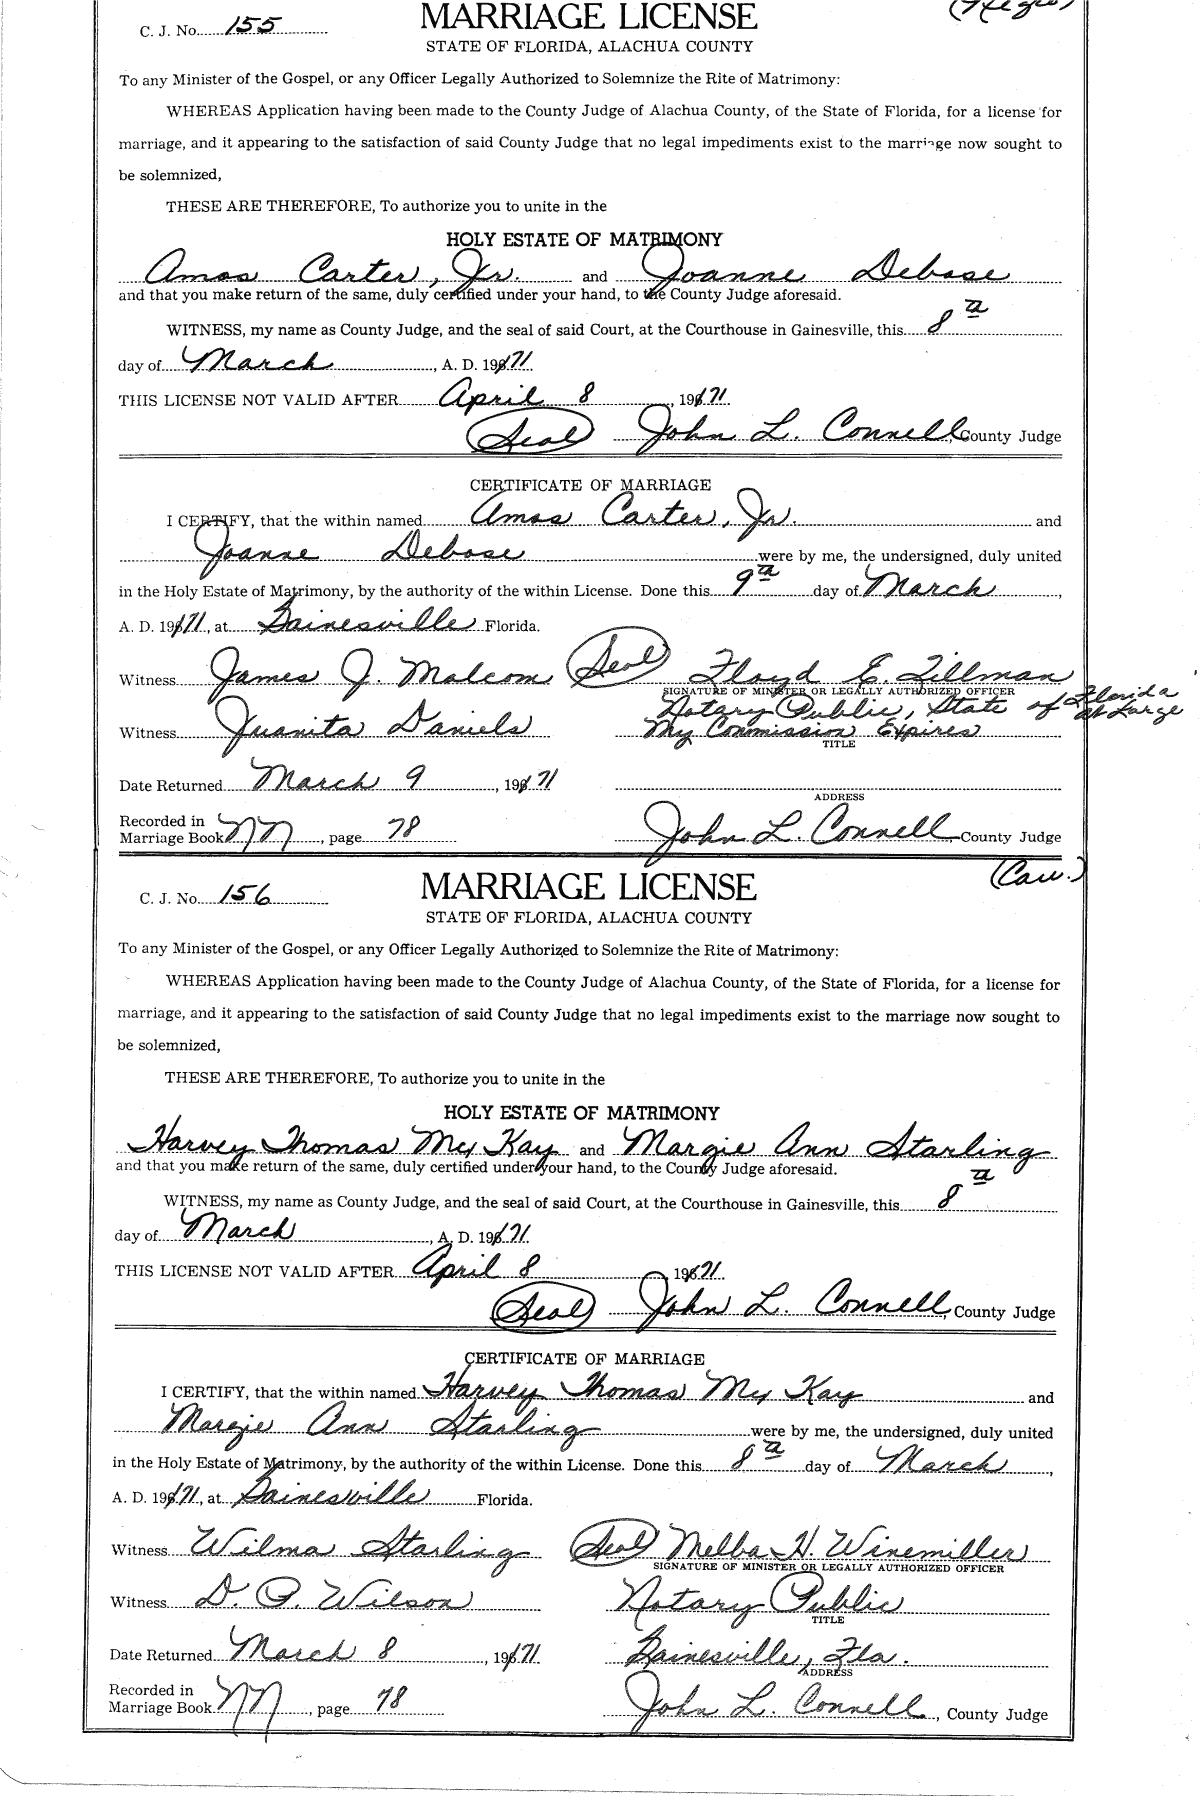 C. J. No. 155
MARRIAGE LICENSE
(Negro)
STATE OF FLORIDA, ALACHUA COUNTY
To any Minister of the Gospel, or any Officer Legally Authorized to Solemnize the Rite of Matrimony:
WHEREAS Application having been made to the County Judge of Alachua County, of the State of Florida, for a license for
marriage, and it appearing to the satisfaction of said County Judge that no legal impediments exist to the marriage now sought to
be solemnized,
THESE ARE THEREFORE, To authorize you to unite in the
HOLY ESTATE OF MATRIMONY
Amos Carter, Jr. and Joanne Debose
and that you make return of the same, duly certified under your hand, to the County Judge aforesaid.
WITNESS, my name as County Judge, and the seal of said Court, at the Courthouse in Gainesville, this 8th
day of March, A. D. 1971
THIS LICENSE NOT VALID AFTER April 8, 1971
(Seal) John L. Connell, County Judge
CERTIFICATE OF MARRIAGE
I CERTIFY, that the within named Amos Carter, Jr. and
Joanne Debose were by me, the undersigned, duly united
in the Holy Estate of Matrimony, by the authority of the within License. Done this 9th day of March,
A. D. 1971, at Gainesville Florida.
Witness James J. Malcom (Seal) Floyd E. Tillman
SIGNATURE OF MINISTER OR LEGALLY AUTHORIZED OFFICER
Notary Public, State of Florida at Large
Witness Juanita Daniels My Commission Expires
TITLE
Date Returned March 9, 1971
ADDRESS
Recorded in
Marriage Book NN, page 78 John L. Connell, County Judge
(Cau.)
C. J. No. 156
MARRIAGE LICENSE
STATE OF FLORIDA, ALACHUA COUNTY
To any Minister of the Gospel, or any Officer Legally Authorized to Solemnize the Rite of Matrimony:
WHEREAS Application having been made to the County Judge of Alachua County, of the State of Florida, for a license for
marriage, and it appearing to the satisfaction of said County Judge that no legal impediments exist to the marriage now sought to
be solemnized,
THESE ARE THEREFORE, To authorize you to unite in the
HOLY ESTATE OF MATRIMONY
Harvey Thomas McKay and Margie Ann Starling
and that you make return of the same, duly certified under your hand, to the County Judge aforesaid.
WITNESS, my name as County Judge, and the seal of said Court, at the Courthouse in Gainesville, this 8th
day of March, A. D. 1971
THIS LICENSE NOT VALID AFTER April 8, 1971
(Seal) John L. Connell, County Judge
CERTIFICATE OF MARRIAGE
I CERTIFY, that the within named Harvey Thomas McKay and
Margie Ann Starling were by me, the undersigned, duly united
in the Holy Estate of Matrimony, by the authority of the within License. Done this 8th day of March,
A. D. 1971, at Gainesville Florida.
Witness Wilma Starling (Seal) Melba H. Winemiller
SIGNATURE OF MINISTER OR LEGALLY AUTHORIZED OFFICER
Witness D. P. Wilson Notary Public
TITLE
Date Returned March 8, 1971 Gainesville, Fla.
ADDRESS
Recorded in
Marriage Book NN, page 78 John L. Connell, County Judge